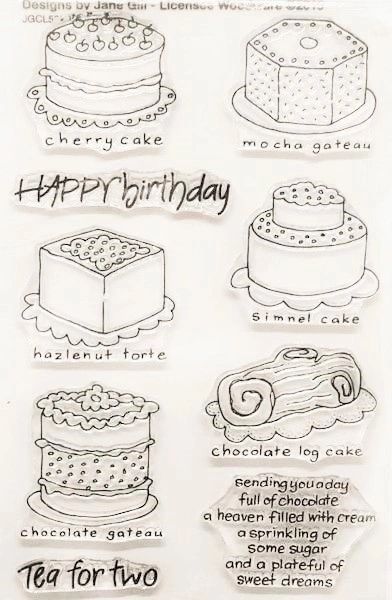 Designs by Jane Gill - Licensed
cherry cake
mocha gateau
HAPPY birthday
simnel cake
hazlenut torte
chocolate log cake
chocolate gateau
sending you a day
full of chocolate
a heaven filled with cream
a sprinkling of
some sugar
and a plateful of
sweet dreams
Tea for two